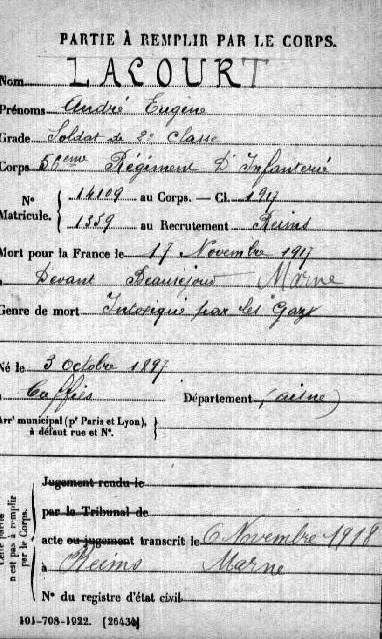 PARTIE À REMPLIR PAR LE CORPS.
Nom LACOURT
Prénoms André Eugène
Grade Soldat de 2e Classe
Corps 56ème Régiment D'Infanterie
N° Matricule. { 14109 au Corps. — Cl. 1917
1359 au Recrutement Reims
Mort pour la France le 17 Novembre 1917
à Devant Beauséjour Marne
Genre de mort Intoxiqué par les Gaz
Né le 3 octobre 1897
à Département (aisne)
Arrt municipal (pr Paris et Lyon), à défaut rue et N°.
Cette partie n'est pas à remplir par le Corps.
Jugement rendu le
par le Tribunal de
acte ou jugement transcrit le 6 Novembre 1918
à Reims Marne
N° du registre d'état civil
101-708-1922. [26434]